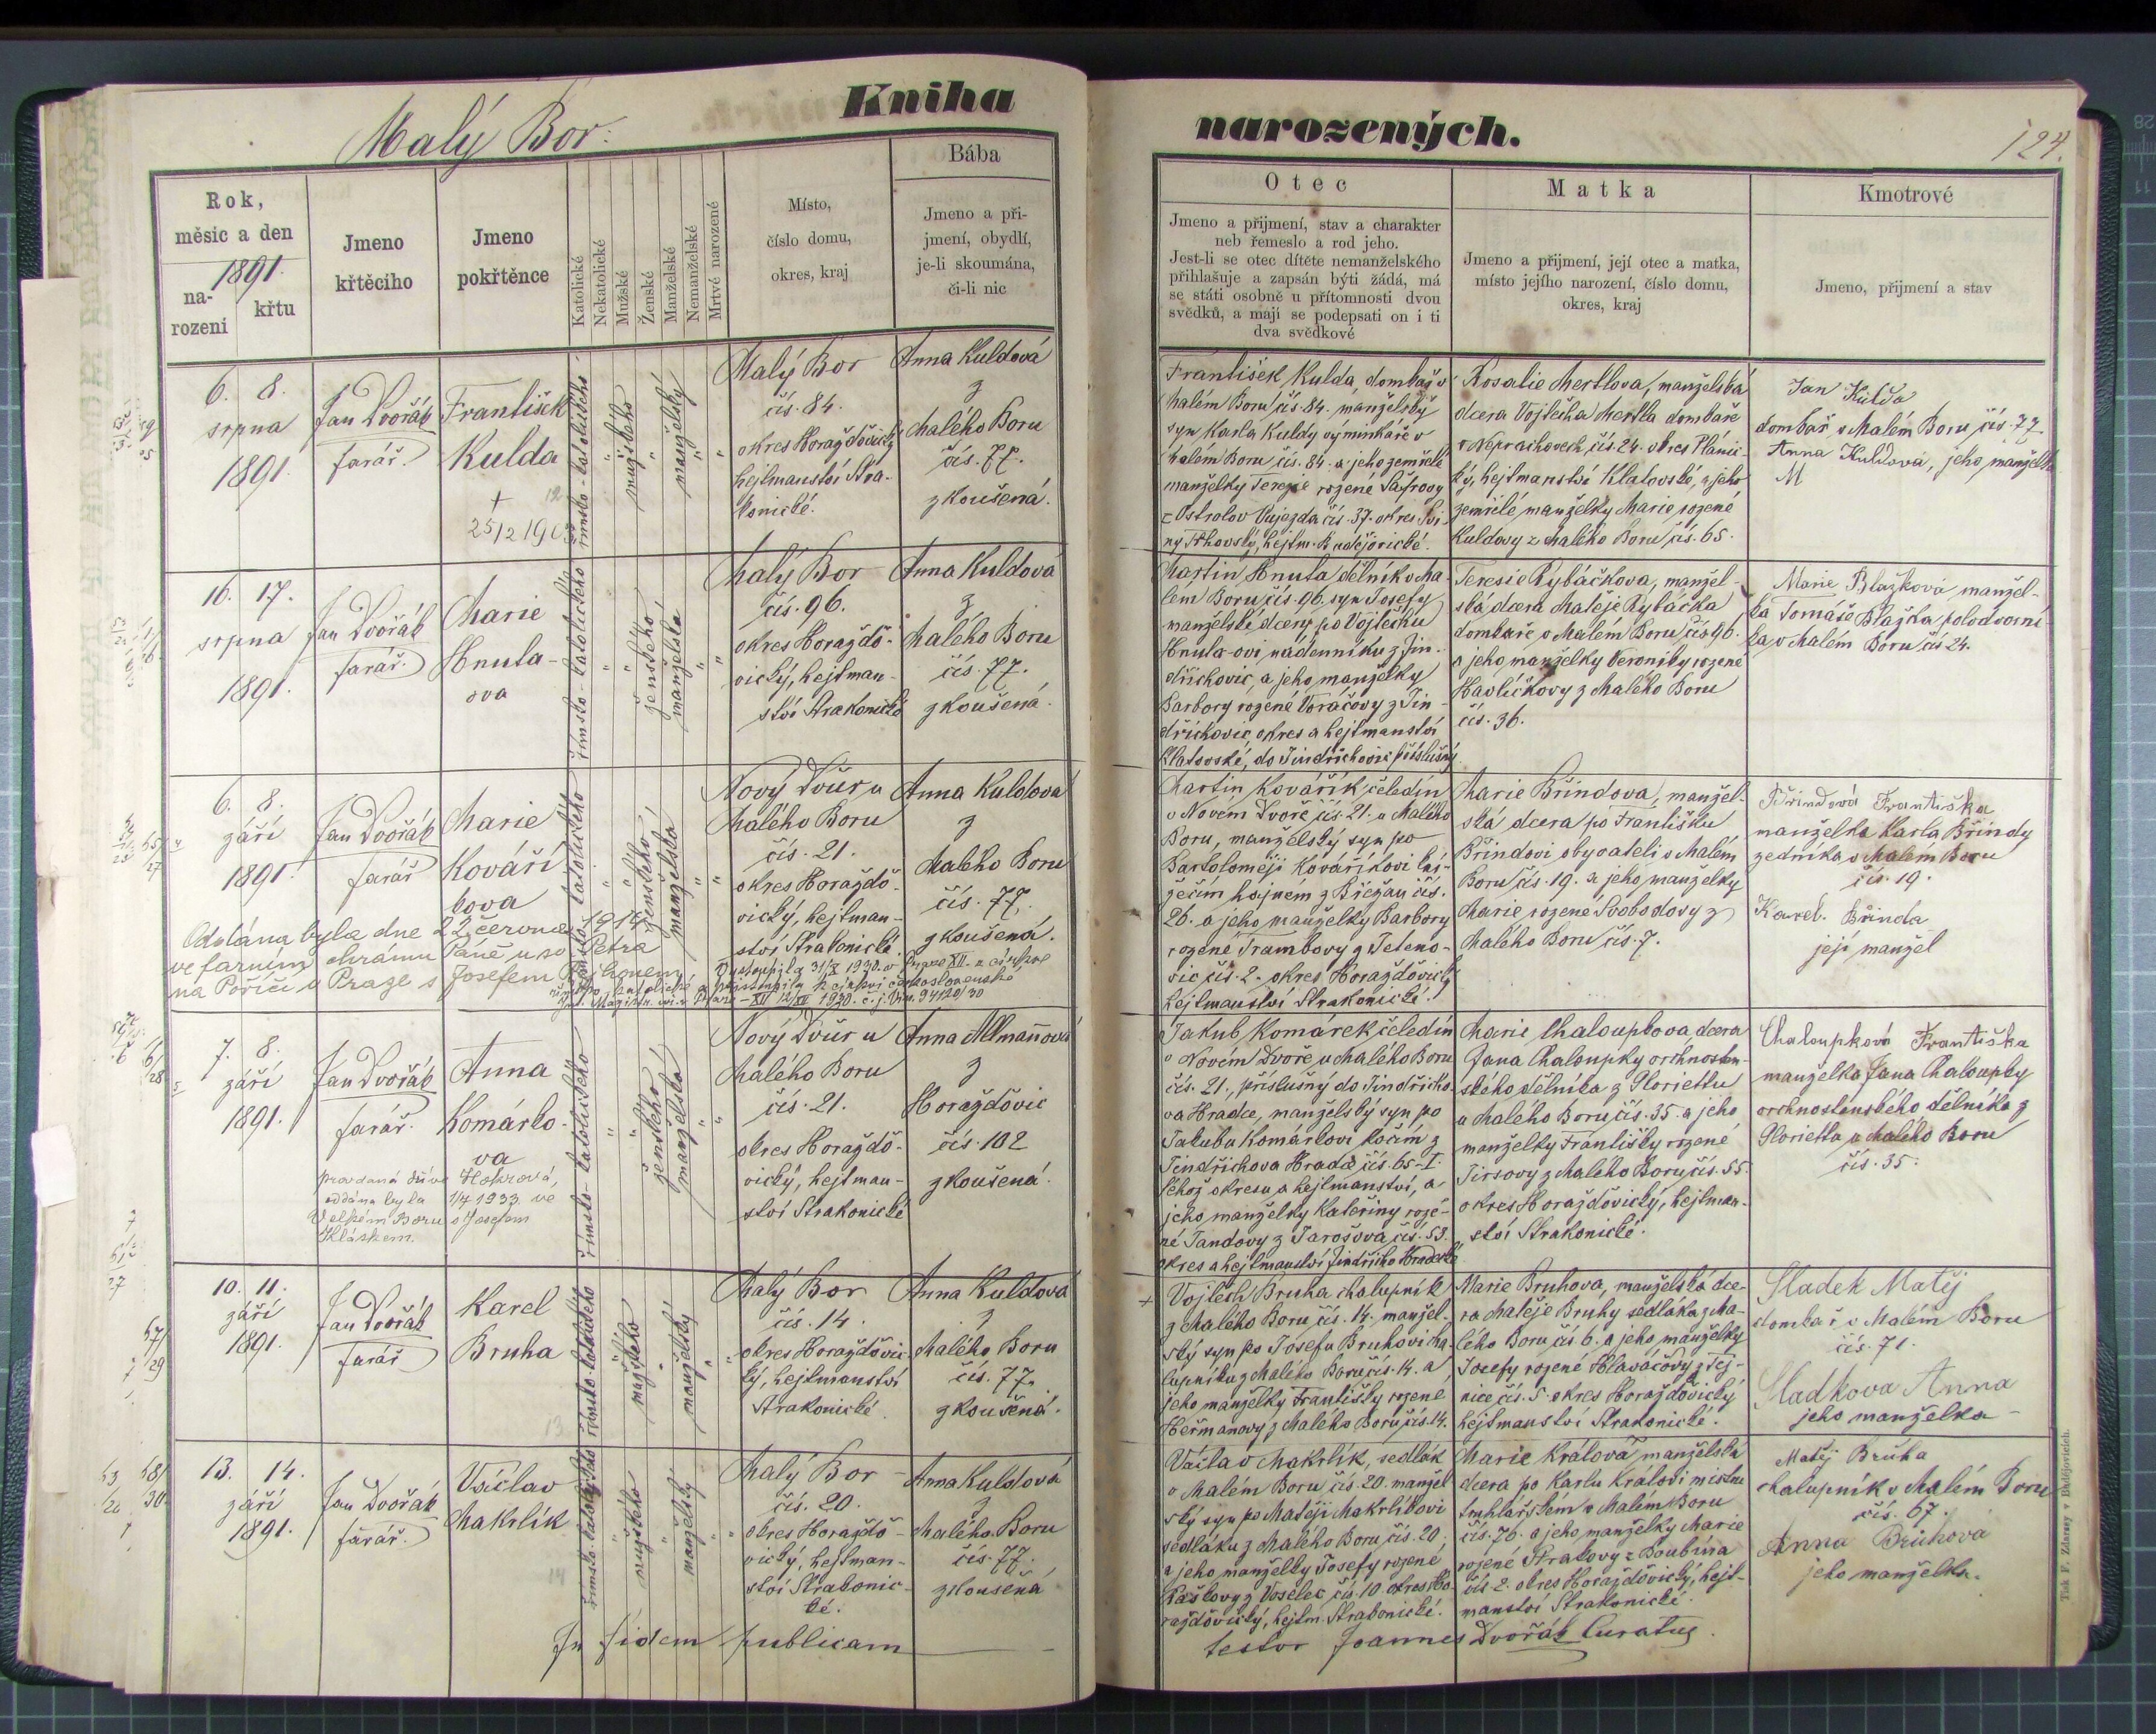 Kniha
Malý Bor.
Bába
Rok,
měsic a den
1891.
na-
rozeni
křtu
Jmeno
křtěcího
Jmeno
pokřtěnce
Katolické
Nekatolické
Mužské
Ženské
Manželské
Nemanželské
Mrtvé narozené
Místo,
číslo domu,
okres, kraj
Jmeno a při-
jmení, obydlí,
je-li skoumána,
či-li nic
6. 8.
srpna
1891.
Jan Dvořák
farář.
František
Kulda
+
římsko-katolického
mužského
manželský
Malý Bor
čís. 84.
okres Horažďovický
hejtmanství Stra-
konické.
Anna Kuldová
z
Malého Boru
čís. 77.
zkoušená.
16. 17.
srpna
1891.
Jan Dvořák
farář.
Marie
Hnuta-
ova
římsko-katolického
ženského
manželská
Malý Bor
čís. 96.
okres Horažďo-
vický, hejtman-
ství Strakonické
Anna Kuldová
z
Malého Boru
čís. 77.
zkoušená.
6. 8.
září
1891.
Jan Dvořák
farář
Marie
Kováří
kova
římsko-katolického
ženského
manželská
Nový Dvůr u
Malého Boru
čís. 21.
okres Horažďo-
vický, hejtman-
ství Strakonické.
Anna Kuldova
z
Malého Boru
čís. 77.
zkoušená.
Oddána byla dne 22 července 1914
ve farním chrámu Páně u sv Petra
na Poříčí v Praze s Josefem
Vystoupila 31/X 1930 v Praze XII. z církve
římsko katolické a přistoupila k církvi československé
7. 8.
září
1891.
Jan Dvořák
farář.
Anna
Komárko-
va
římsko-katolického
ženského
manželská
Nový Dvůr u
Malého Boru
čís. 21.
okres Horažďo-
vický, hejtman-
ství Strakonické
Anna Allmannová
z
Horažďovic
čís. 102
zkoušená.
oddána byla 1/7 1933 ve
Velkém Boru s Josefem
10. 11.
září
1891.
Jan Dvořák
farář
Karel
Bruha
římsko-katolického
mužského
manželský
Malý Bor
čís. 14.
okres Horažďovic-
ký, hejtmanství
Strakonické
Anna Kuldova
z
Malého Boru
čís. 77.
zkoušená.
13. 14.
září
1891.
Jan Dvořák
farář.
Václav
Makrlík
římsko-katolického
mužského
manželský
Malý Bor
čís. 20.
okres Horažďo-
vický, hejtman-
ství Strakonic-
ké.
Anna Kuldová
z
Malého Boru
čís. 77.
zkoušená
In fidem publicam
narozených.
124.
Otec
Matka
Kmotrové
Jmeno a přijmení, stav a charakter
neb řemeslo a rod jeho.
Jest-li se otec dítěte nemanželského
přihlašuje a zapsán býti žádá, má
se státi osobně u přítomnosti dvou
svědků, a mají se podepsati on i ti
dva svědkové
Jmeno a přijmení, její otec a matka,
místo jejího narození, číslo domu,
okres, kraj
Jmeno, přijmení a stav
František Kulda, domkař v
Malém Boru čís 84. manželský
syn Karla Kuldy výminkáře v
Malém Boru čís. 84. a jeho zemřelé
manželky Terezie rozené
z Ostrolov Oujezda čís. 37. okres Svi-
ny Trhovský, hejtm. Budějovické.
Rosalie Mertlova, manželská
dcera Vojtěcha Mertla domkaře
v Neprachovech čís. 24. okres Plánic-
ký, hejtmanství Klatovské, a jeho
zemřelé manželky Marie rozené
Kuldovy z Malého Boru čís. 65.
Jan Kulda
domkař v Malém Boru čís. 77
Anna Kuldová, jeho manželka
Martin Hnuta dělník v Ma-
lém Boru čís. 96. syn Josefy
manželské dcery po Vojtěchu
Hnuta-ovi nádenníku z Jin-
dřichovic a jeho manželky
Barbory rozené Voráčovy z Jin-
dřichovic, okres a hejtmanství
Klatovské, do Jindřichovic příslušný.
Teresie Rybáčkova, manžel-
ská dcera Matěje Rybáčka
domkaře v Malém Boru čís 96.
a jeho manželky Veroniky rozené
Havlíčkovy z Malého Boru
čís. 36.
Marie Blažková manžel-
ka Tomáše Blažka polodvorní-
ka v Malém Boru čís 24.
Martin Kovářík čeledín
v Novém Dvoře čís. 21. u Malého
Boru, manželský syn po
Bartoloměji Kováříkovi kní-
žecím hajném z Břežan čís.
26. a jeho manželky Barbory
rozené Trambovy z Teteno-
vic čís. 2. okres Horažďovický
hejtmanství Strakonické.
Marie Břindova, manžel-
ská dcera po Františku
Břindovi obyvateli v Malém
Boru čís. 19. a jeho manželky
Marie rozené Svobodovy z
Malého Boru čís. 7.
Břindová Františka
manželka Karla Břindy
zedníka v Malém Boru
čís. 19.
Karel Břinda
její manžel
Jakub Komárek čeledín
v Novém dvoře u Malého Boru
čís. 21., příslušný do Jindřicho-
va Hradce, manželský syn po
Jakubu Komárkovi kočím z
Jindřichova Hradce čís. 65-I.
téhož okresu a hejtmanství, a
jeho manželky Kateřiny roze-
né Jandovy z Jarošova čís. 53.
okres a hejtmanství Jindřicho Hradecké
Marie Chaloupkova, dcera
Jana Chaloupky vrchnosten-
ského dělníka z Gloriettu
u Malého Boru čís. 35. a jeho
manželky Františky rozené
Jirsovy z Malého Boru čís. 55.
okres Horažďovický, hejtman-
ství Strakonické.
Chaloupková Františka
manželka Jana Chaloupky
vrchnostenského dělníka z
Glorietta u Malého Boru
čís. 35.
Vojtěch Bruha chalupník
z Malého Boru čís. 14. manžel-
ský syn po Josefu Bruhovi cha-
lupníku z Malého Boru čís. 14. a
jeho manželky Františky rozené
Heřmanovy z Malého Boru čís. 14.
Marie Bruhova, manželská dce-
ra Matěje Bruhy sedláka z Ma-
lého Boru čís 6. a jeho manželky
Josefy rozené Hlaváčovy z Tej-
nice čís. 5 okres Horažďovický
hejtmanství Strakonické.
Sladek Matěj
domkař v Malém Boru
čís. 71.
Sladkova Anna
jeho manželka
Václav Makrlík, sedlák
v Malém Boru čís. 20. manžel
ský syn po Matěji Makrlíkovi
sedláku z Malého Boru čís. 20,
a jeho manželky Josefy rozené
Paškovy z Voselec čís. 10 okres Ho-
ražďovický, hejtm. Strakonické.
Marie Králova manželská
dcera po Karlu Královi mistru
truhlářském v Malém Boru
čís. 76. a jeho manželky Marie
rozené Strakovy z Boubína
čís. 2. okres Horažďovický, hejt-
manství Strakonické.
Matěj Bruha
chalupník v Malém Boru
čís. 67.
Anna Bruhová
jeho manželka.
testor Joannes Dvořák Curatus.
Tisk F. Zdarssy v Budějovicích.